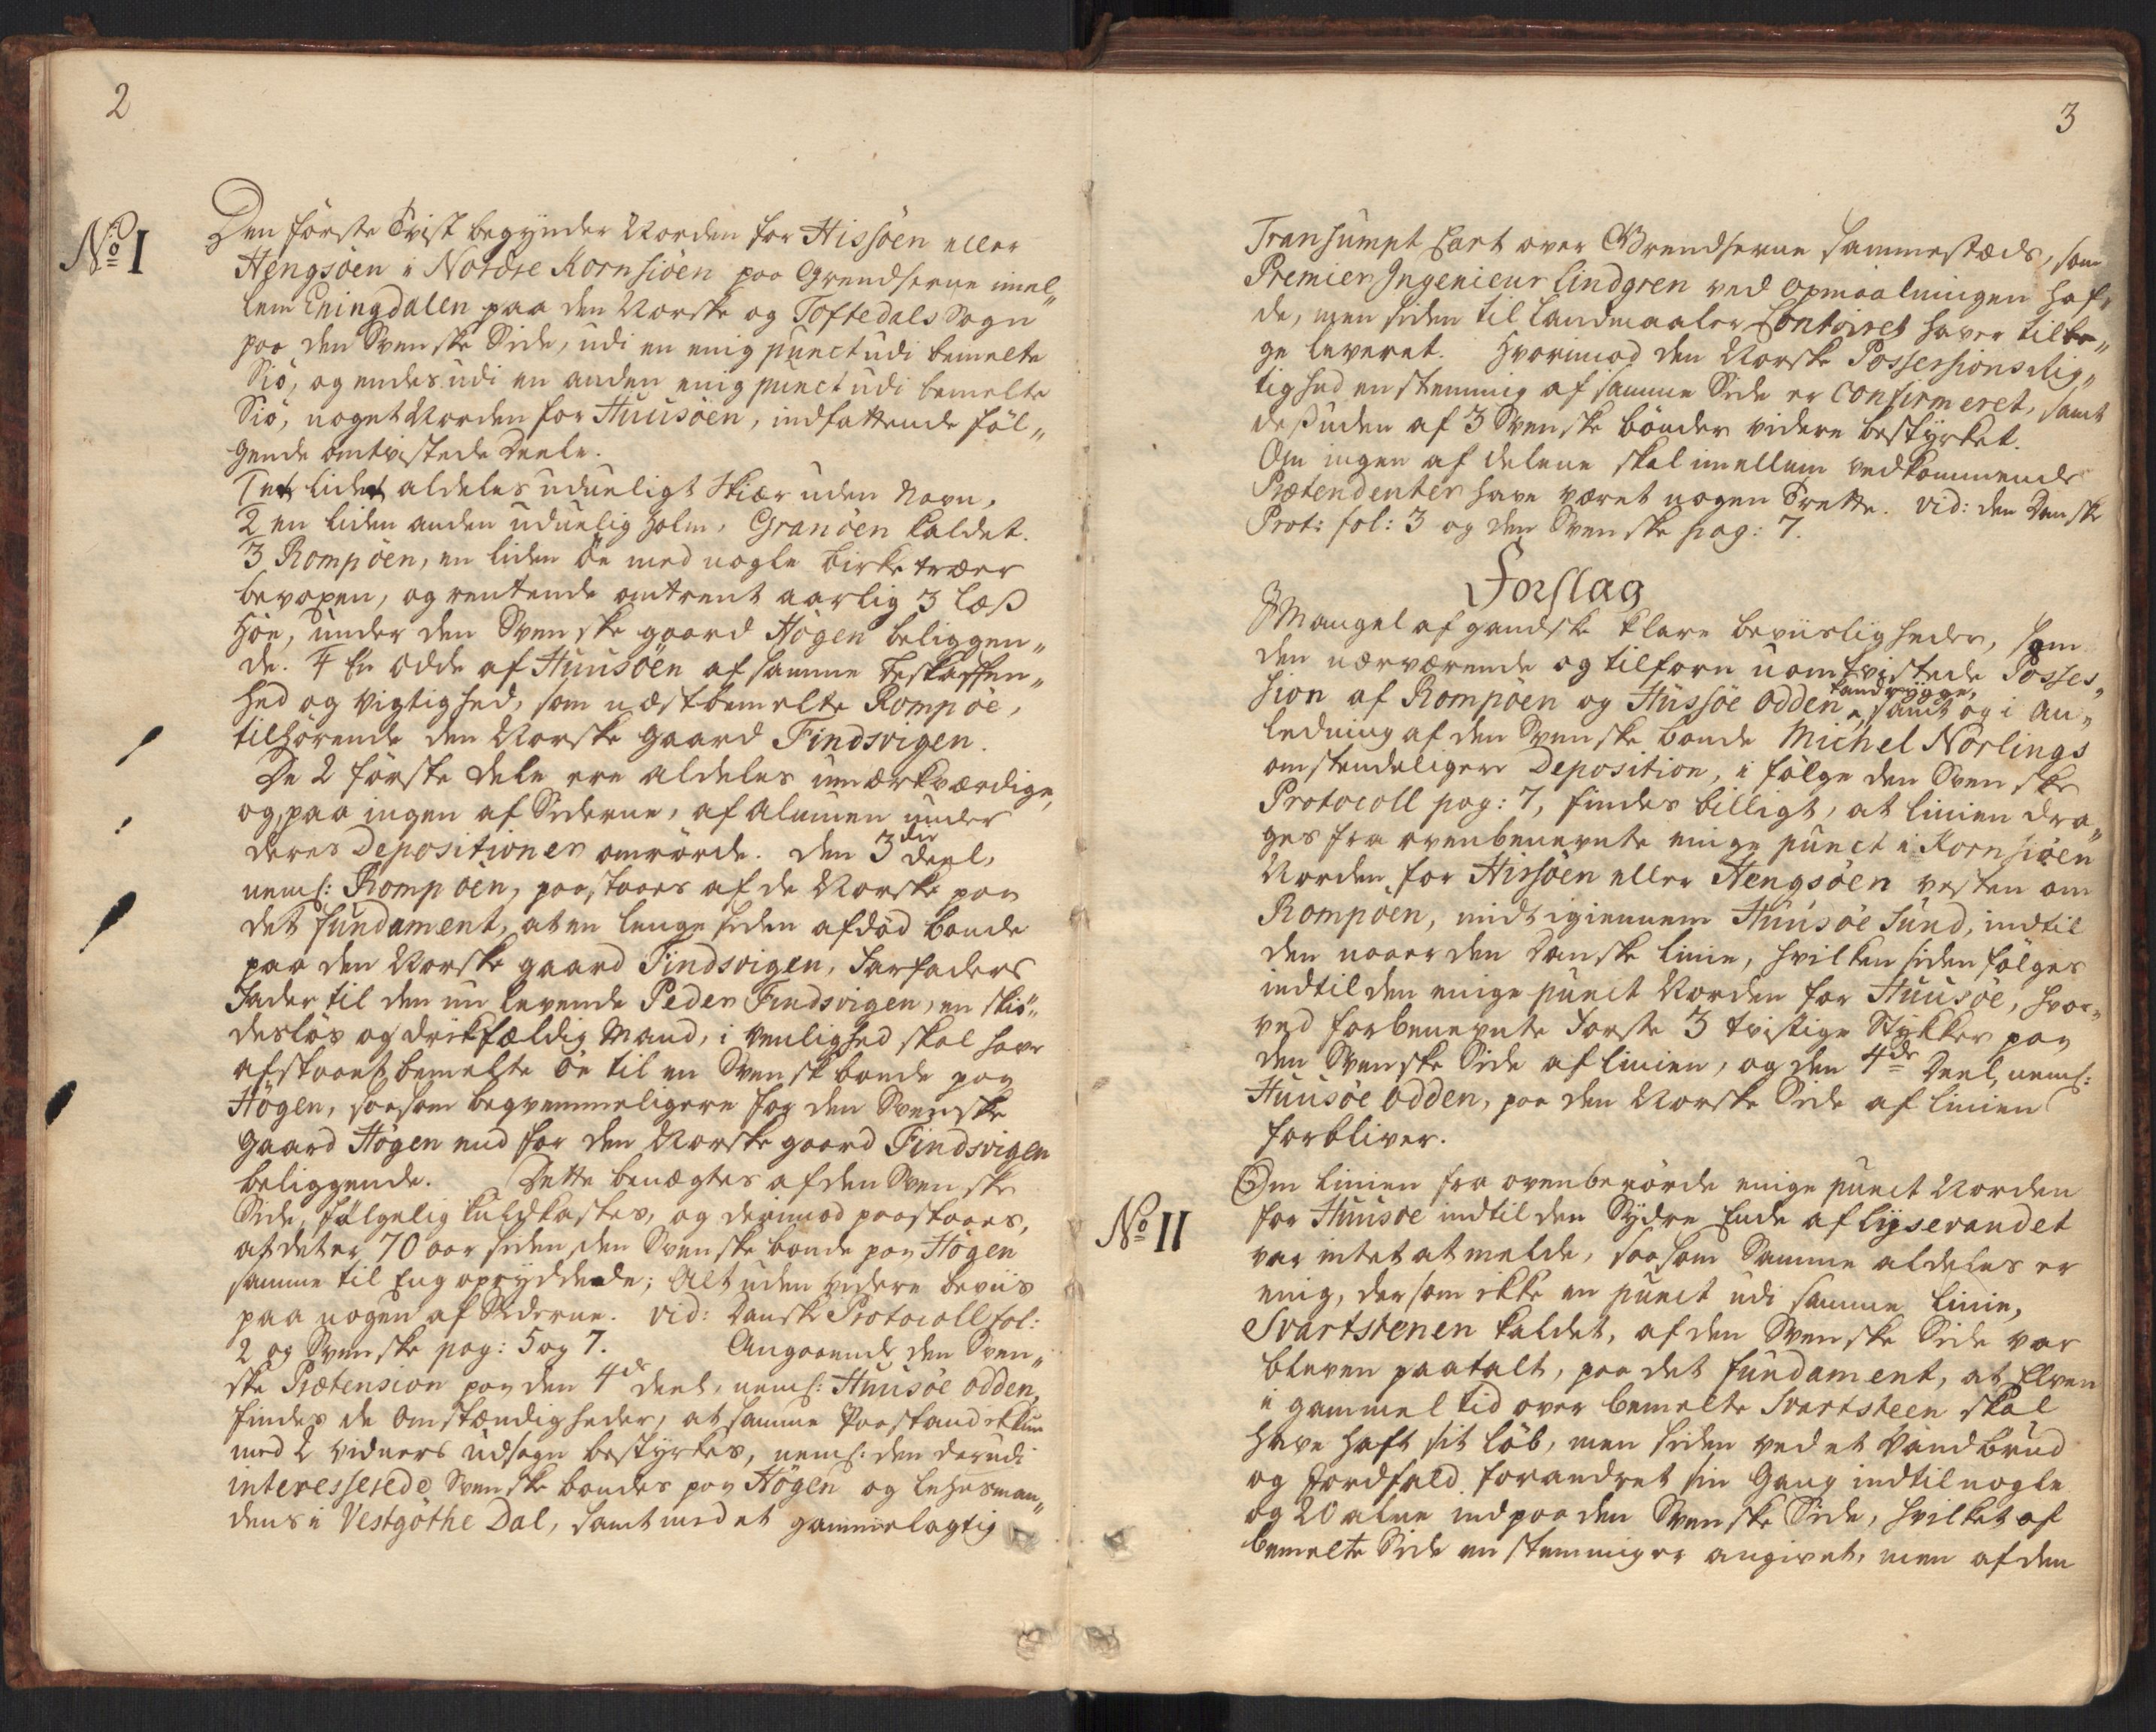 2
No I
Den förste Tvist begynder Norden for Hissöen eller
Hengsöen i Nordre Kornsiöen paa Grendserne imel„
lem Eningdalen paa den Norske og Toftedals Sogn
paa den Svenske Side, udi en enig punct udi bemelte
Siö, og endes udi en anden enig punct udi bemelte
Siö, noget Norden for Huusöen, indfattende föl„
gende omtvistede Deele.
1 et lidet aldeles udueligt Skiær uden Navn.
2 en liden anden uduelig Holm, Granöen kaldet.
3 Rompöen, en liden öe med nogle birke træer
bevoxen, og rentende omtrent aarlig 3 læs
Höe, under den Svenske gaard Högen beliggen„
de. 4 En Odde af Huusöen af samme beskaffen„
hed og vigtighed, som næstbemelte Rompöe,
tilhörende den Norske Gaard Findsvigen.
De 2 förste dele ere aldeles umærkværdige,
og paa ingen af Siderne, af Almuen under
deres Depositioner omrörde. Den 3die deel,
neml: Rompöen, paastaaes af de Norske paa
det fundament, at en lenge siden afdöd bonde
paa den Norske gaard Findsvigen, Farfaders
Fader til den nu levende Peder Findsvigen, en skiö„
deslös og drikfældig Mand, i venlighed skal have
afstaaet bemelte öe til en Svensk bonde paa
Högen, saasom beqvemmeligere for den Svenske
Gaard Högen end for den Norske gaard Findsvigen
beliggende. Dette benægtes af den Svenske
Side, fölgelig kuldkastes, og derimod paastaaes,
at det er 70 aar siden, den Svenske bonde paa Högen
samme til Eng opryddede; Alt uden videre beviis
paa nogen af Siderne. vid: Danske Protocoll fol:
2 og Svenske pag: 5 og 7. Angaaende den Sven„
ske Prætension paa den 4de deel, neml: Huusöe Odden,
findes de Omstændigheder, at samme Paastand ikkun
med 2 Vidners udsagn bestyrkes, neml: den derudi
interesserede Svenske bondes paa Högen og Lehnsman„
dens i Vestgöthe Dal, samt med et gammelagtig
3
Transumpt Cart over Grendserne sammestæds, som
Premier Ingenieur Lindgren ved opmaalningen haf„
de, men siden til Landmaaler Contoiret haver tilba„
ge leveret. Hvorimod den Norske Possessions Rig„
tighed enstemmig af samme Side er Confirmeret, samt
desuden af 3 Svenske bönder videre bestyrket.
Om ingen af delene skal imellem vedkommende
Prætendenter have været nogen Trette. vid: den Danske
Prot: fol: 3 og den Svenske pag: 7.
Forslag
I Mangel af gandske klare beviisligheder, som
den nærværende og tilforn uomtvistede Posses„
sion af Rompöen og Hussöe Odden, samt og i An„
ledning af den Svenske bonde Michel Norlings
omstendeligere Deposition, i fölge den Svenske
Protocoll pag: 7, findes billigt, at Linien dra„
ges fra ovenbenevnte enige punct i Kornsiöen
Norden for Hissöen eller Hengsöen vesten om
Rompöen, midt igiennem Huusöe Sund, indtil
den naaer den Danske Linie, hvilken siden fölges
indtil den enige punct Norden for Huusöe, hvor„
ved forbenevnte Forste 3 tvistige Stykker paa
den Svenske Side af Linien, og den 4de Deel, neml:
Huusöe Odden, paa den Norske Side af Linien
forbliver.
No II
Om Linien fra ovenberörde enige punct Norden
for Huusöe indtil den Sydre Ende af Lysevandet
var intet at melde, saasom Samme aldeles er
enig, dersom ikke en punct udi samme Linie,
Svartstenen kaldet, af den Svenske Side var
bleven paatalt, paa det fundament, at Elven
i gammel tid over bemelte Svartsteen skal
have haft sit löb, men siden ved et Vandbrud
og Jordfald forandret sin Gang indtil nogle
og 20 alne ind paa den Svenske Side, hvilket af
bemelte Side enstemmig er angivet, men af den